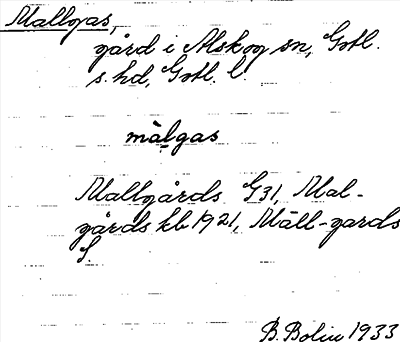 Mallgas,
gård i Alskog sn, Gotl.
s. hd, Gotl. l.
mȧlgas
Mallgårds G31, Mal-
gårds kb 1921, Mäll-gards
S.
B. Bolin 1933